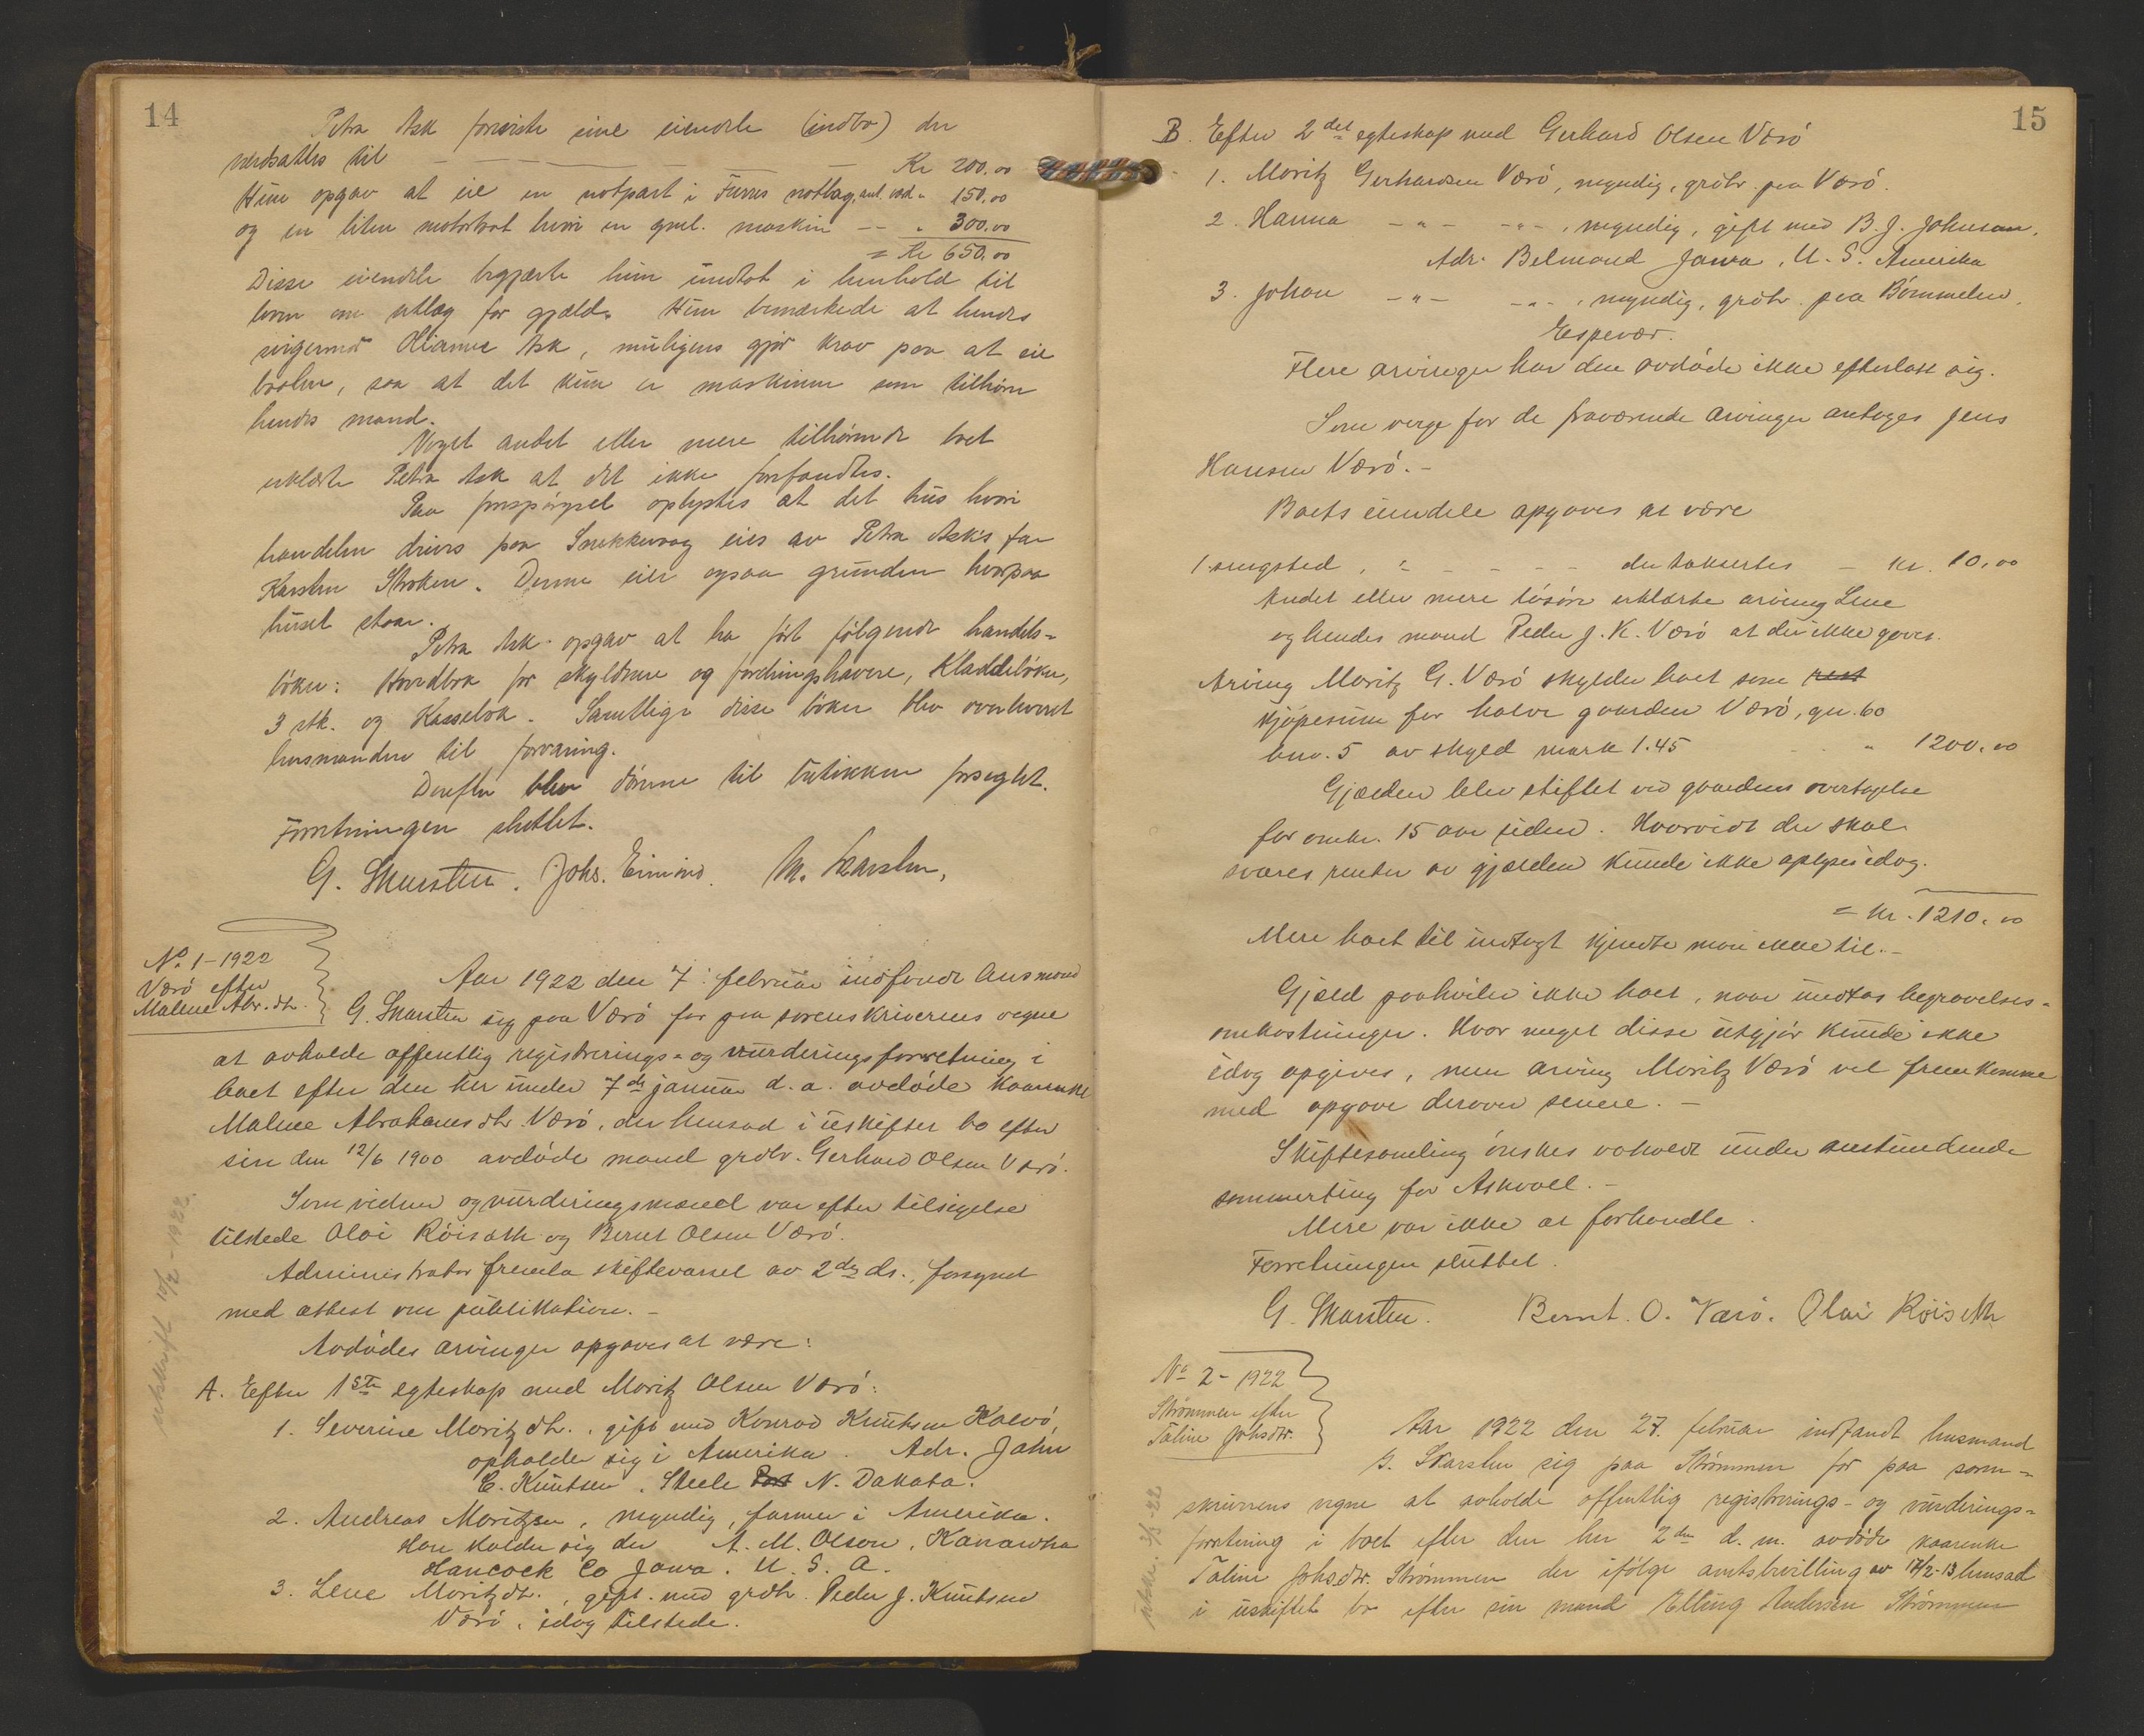 14
Petra Ask foreviste sine eiendele (indbo) der
verdsattes til — — — Kr 200,00
Hun opgav at eie en notpart i Furres notlag, anl. verd " 150,00
og en liten motorbaat hvori en gml. maskin — — " 300,00
= Kr 650,00
Disse eiendele begjærte hun undtat i henhold til
loven om utlæg for gjæld. Hun bemærkede at hendes
svigermor Olianne Ask, muligens gjør krav paa at eie
baaten, saa at det kun er maskinen som tilhører
hendes mand.
Noget andet eller mere tilhørende boet
erklærte Petra Ask at det ikke forefandtes.
Paa forespørgsel oplystes at det hus hvori
handelen drives paa Snekkevaag eies av Petra Ask's far
Karsten Stroken. Denne eier ogsaa grunden hvorpaa
huset staar.
Petra Ask opgav at ha ført følgende handels-
bøker: Hovedbok for skyldnere og fordringshavere, Kladdebøker,
3 stk. og Kassebok. Samtlige disse bøker blev overleveret
lensmanden til forvaring.
Derefter blev dørene til butikken forseglet.
Forretningen sluttet.
G. Skarsten. Johs. Eimind. M. Karsten,
No 1-1922
Værö efter
Malene Abr.dtr.
Aar 1922 den 7. februar indfandt lensmand
G. Skarsten sig paa Værö for paa sorenskriverens vegne
at avholde offentlig registrerings- og vurderingsforretning i
boet efter den her under 7de januar d. a. avdöde kaarenke
Malene Abrahamsdtr. Værö, der hensad i uskiftet bo efter
sin den 12/6 1900 avdöde mand grdbr. Gerhard Olsen Værö.
Som vidner og vurderingsmænd var efter tilsigelse
tilstede Olai Röiseth og Bernt Olsen Værö.
Administrator fremla skiftevarsel av 2de ds., forsynet
med attest om publikation. –
Avdödes arvinger opgaves at være:
A. Efter 1ste egteskap med Moritz Olsen Værö:
1. Severine Moritzdtr., gift med Konrad Knutsen Kalvö,
opholder sig i Amerika. Adr. John
C. Knutsen, Steele Post N. Dakota.
2. Andreas Moritzsen, myndig, farmer i Amerika.
Han kalder sig der A. M. Olson, Kanawha
Hancock Co Jowa. U. S. A.
3. Lene Moritzdtr., gift med grdbr. Peder J. Knutsen
Værö, idag tilstede.
utskrift 10/2-1922.
15
B. Efter 2det egteskap med Gerhard Olsen Værö
1. Moritz Gerhardsen Værö, myndig, grdbr. paa Værö.
2. Hanna – " – – " –, myndig, gift med B. J. Johnson,
Adr. Belmond Jowa, U. S. Amerika
3. Johan – " – – " –, myndig, grdbr. paa Bömmelen,
Espevær.
Flere arvinger har den avdöde ikke efterlatt sig.
Som verge for de fraværende arvinger antoges Jens
Hansen Værö. –
Boets eiendele opgaves at være
1 sengsted, – – – – der taksertes – kr. 10,00
Andet eller mere lösöre erklærte arving Lene
og hendes mand Peder J. K. Værö at der ikke gaves.
Arving Moritz G. Værö skylder boet som rest
kjöpesum for halve gaarden Værö, gn. 60
bnr. 5 av skyld mark 1.45 " 1200,00
Gjælden blev stiftet ved gaardens overtagelse
for omkr. 15 aar siden. Hvorvidt der skal
svares renter av gjælden kunde ikke oplyses idag.
= kr. 1210,00
Mere boet til indtægt kjendte man ikke til. –
Gjæld paahviler ikke boet, naar undtas begravelses-
omkostninger. Hvor meget disse utgjör kunde ikke
idag opgives, men arving Moritz Værö vil fremkomme
med opgave derover senere. –
Skiftesamling önskes avholdt under anstundende
sommerting for Askvoll. –
Mere var ikke at forhandle.
Forretningen sluttet.
G. Skarsten. Bernt. O. Værö. Olai Röiseth
No 2-1922
Strømmen efter
Taline Johsdtr.
Aar 1922 den 27. februar indfandt lensmand
G. Skarsten sig paa Strømmen for paa soren-
skriverens vegne at avholde offentlig registrerings- og vurderings-
forretning i boet efter den her 2den d. m. avdøde kaarenke
Taline Johsdtr. Strømmen der ifølge amtsbevilling av 17/2-13 hensad
i uskiftet bo efter sin mand Elling Andersen Strømmen
utskr. 2/3-22